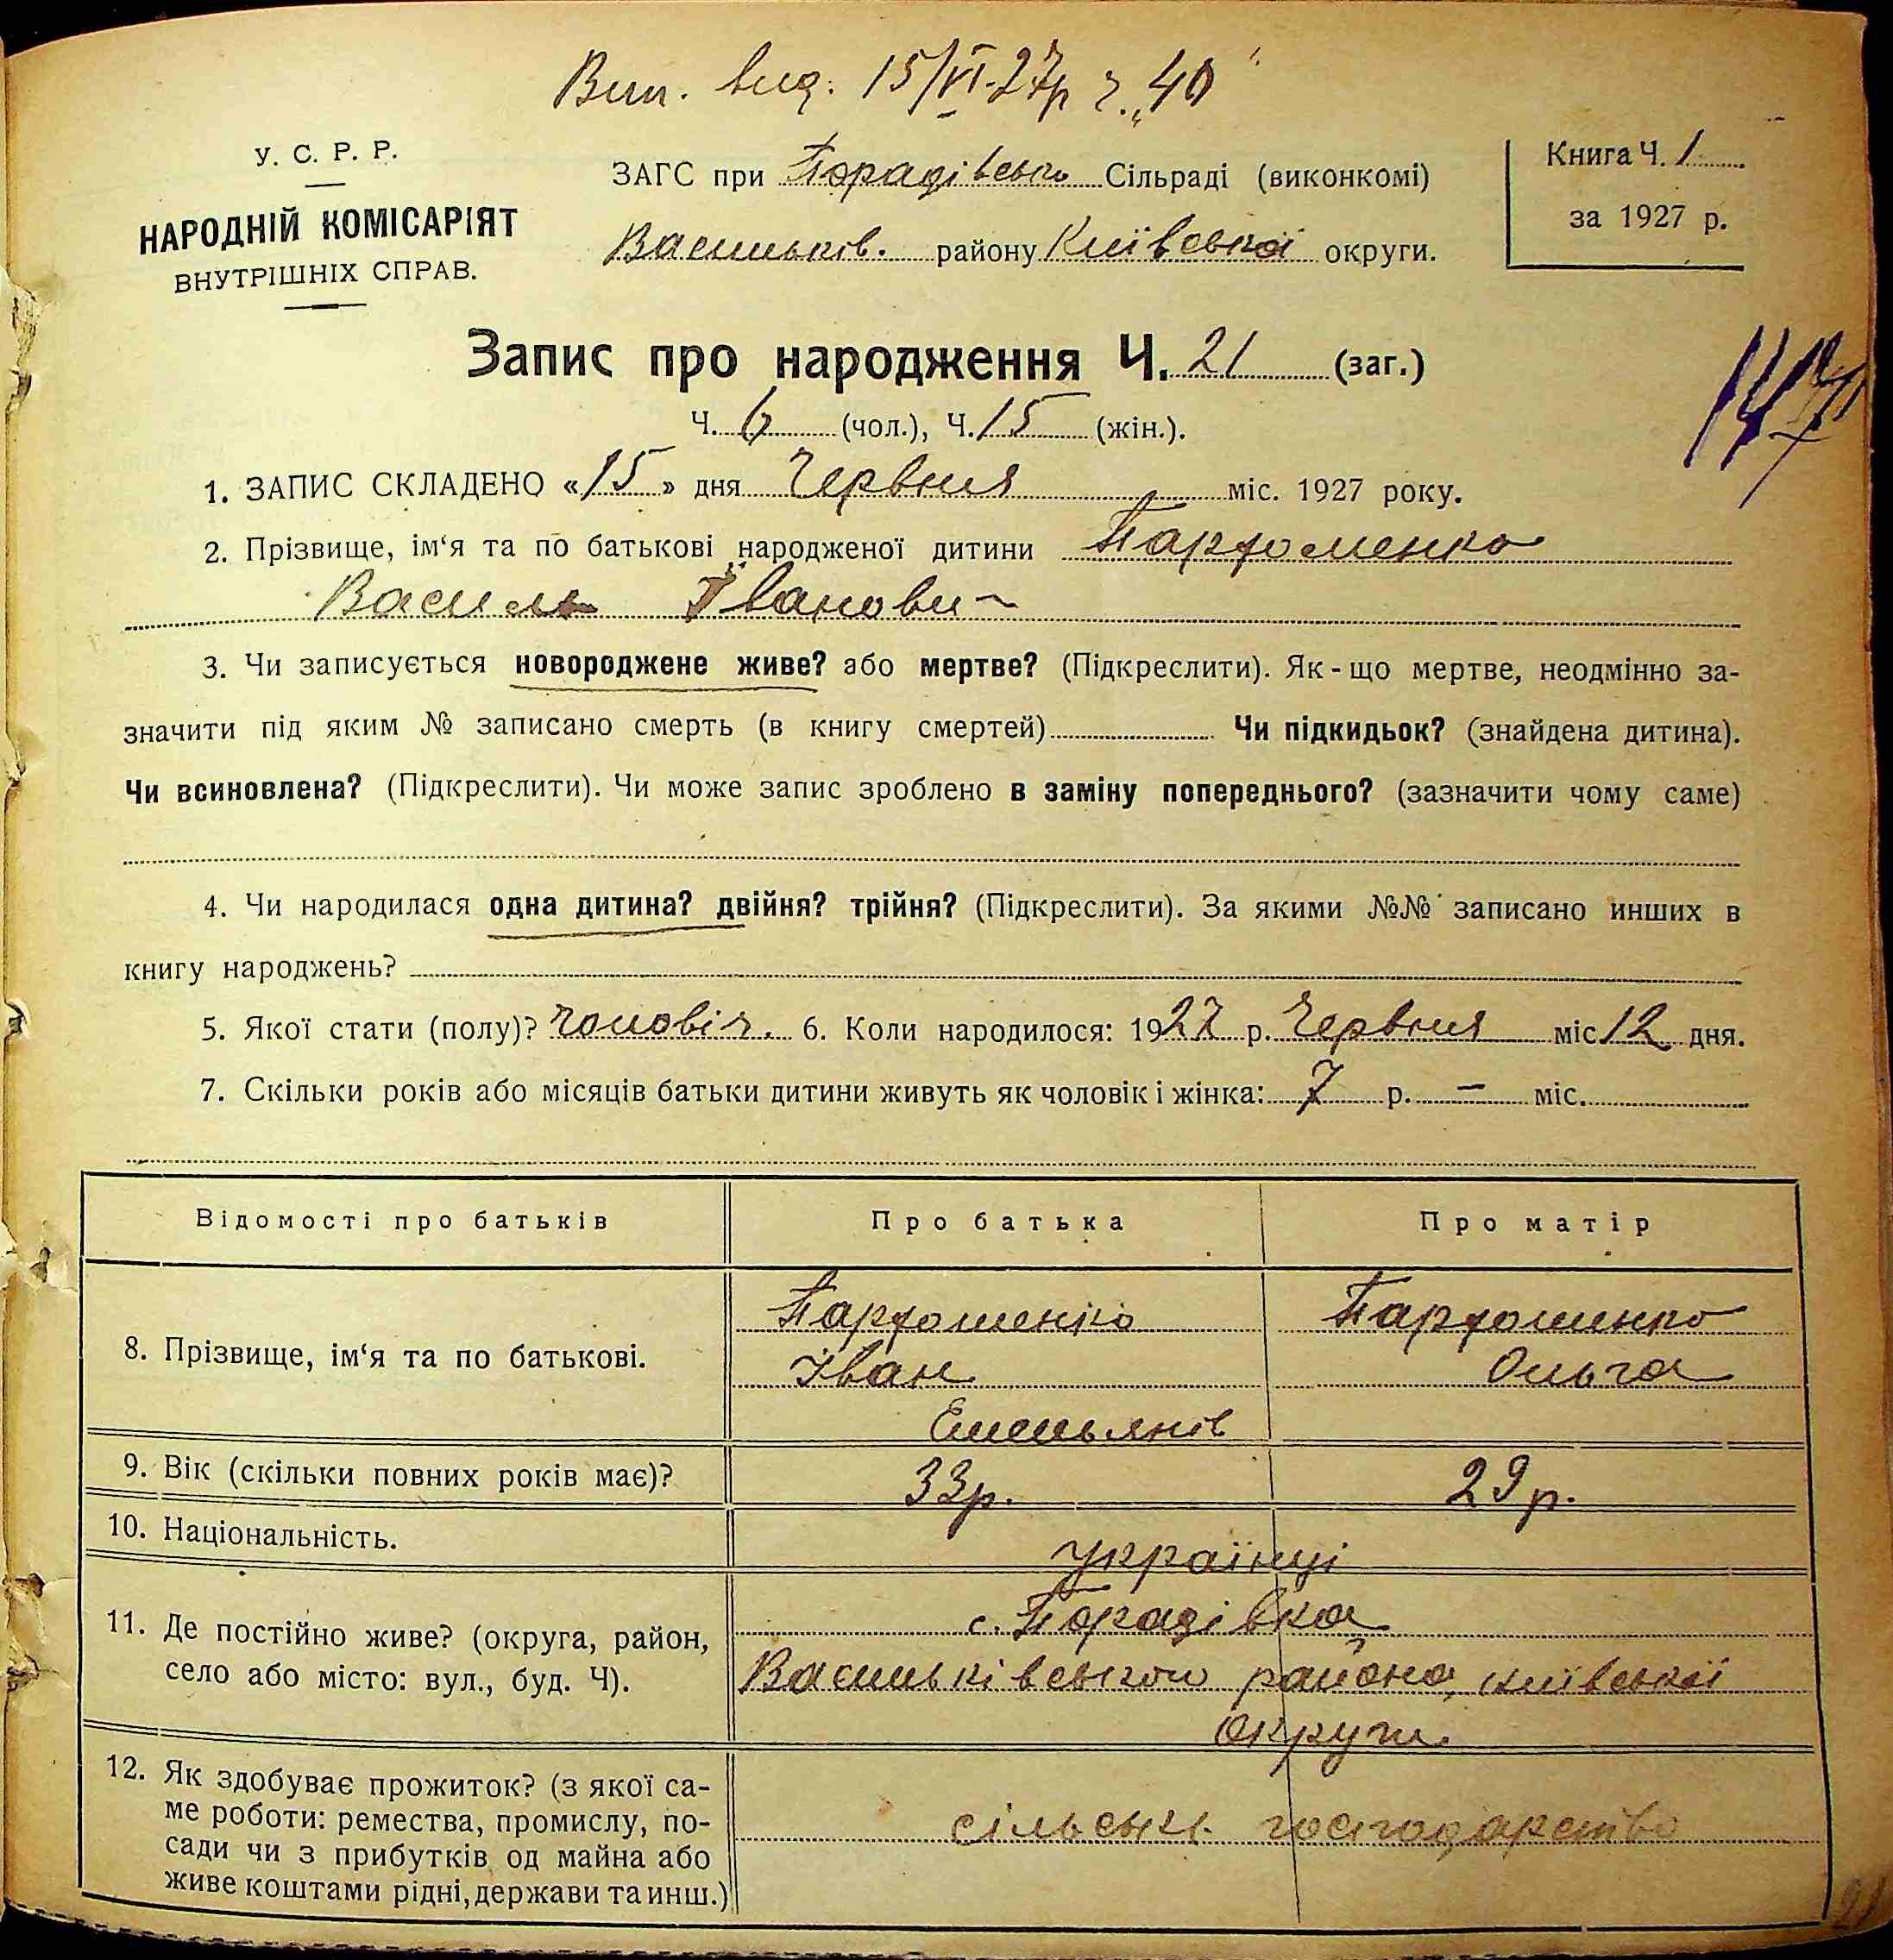 Вип. вид. 15/VI-27р ч. „40"
У. С. Р. Р.
НАРОДНІЙ КОМІСАРІЯТ
ВНУТРІШНІХ СПРАВ.
ЗАГС при Порадівськ. Сільраді (виконкомі)
Васильків. району Київської округи.
Книга Ч. 1
за 1927 р.
Запис про народження Ч. 21 (заг.)
Ч. 6 (чол.), Ч. 15 (жін.).
147
1. ЗАПИС СКЛАДЕНО «15» дня Червня міс. 1927 року.
2. Прізвище, ім‘я та по батькові народженої дитини Пархоменко
Василь Іванович
3. Чи записується новороджене живе? або мертве? (Підкреслити). Як-що мертве, неодмінно за-
значити під яким № записано смерть (в книгу смертей) Чи підкидьок? (знайдена дитина).
Чи всиновлена? (Підкреслити). Чи може запис зроблено в заміну попереднього? (зазначити чому саме)
4. Чи народилася одна дитина? двійня? трійня? (Підкреслити). За якими №№ записано инших в
книгу народжень?
5. Якої стати (полу)? чоловіч. 6. Коли народилося: 1927 р. Червня міс 12 дня.
7. Скільки років або місяців батьки дитини живуть як чоловік і жінка: 7 р. — міс.
Відомості про батьків Про батька Про матір
8. Прізвище, ім‘я та по батькові.
Пархоменко Пархоменко
Іван Ольга
Емельянів
9. Вік (скільки повних років має)? 33р. 29р.
10. Національність. українці
11. Де постійно живе? (округа, район,
село або місто: вул., буд. Ч).
с. Порадівка
Васильківського района, київської
округи
12. Як здобуває прожиток? (з якої са-
ме роботи: ремества, промислу, по-
сади чи з прибутків од майна або
живе коштами рідні, держави та инш.)
сільськ. господарство
21